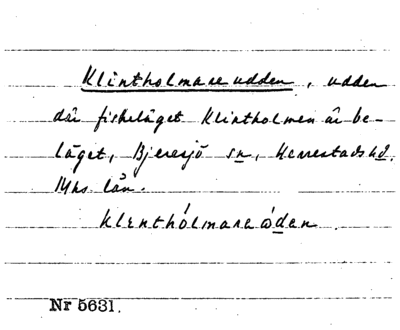 Klintholmareudden, udden
där fiskeläget Klintholmen är be-
läget, Bjeresjö sn, Herrestads hd.
Mhs. län.
Klenthólmareódan.
Nr 5631.